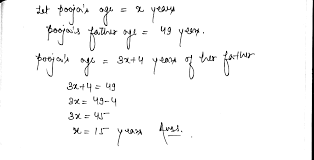 Let pooja's age = x years
pooja's father age = 49 years.
pooja's age = 3x+4 years of her father
3x+4 = 49
3x = 49-4
3x = 45
x = 15 years Ans.